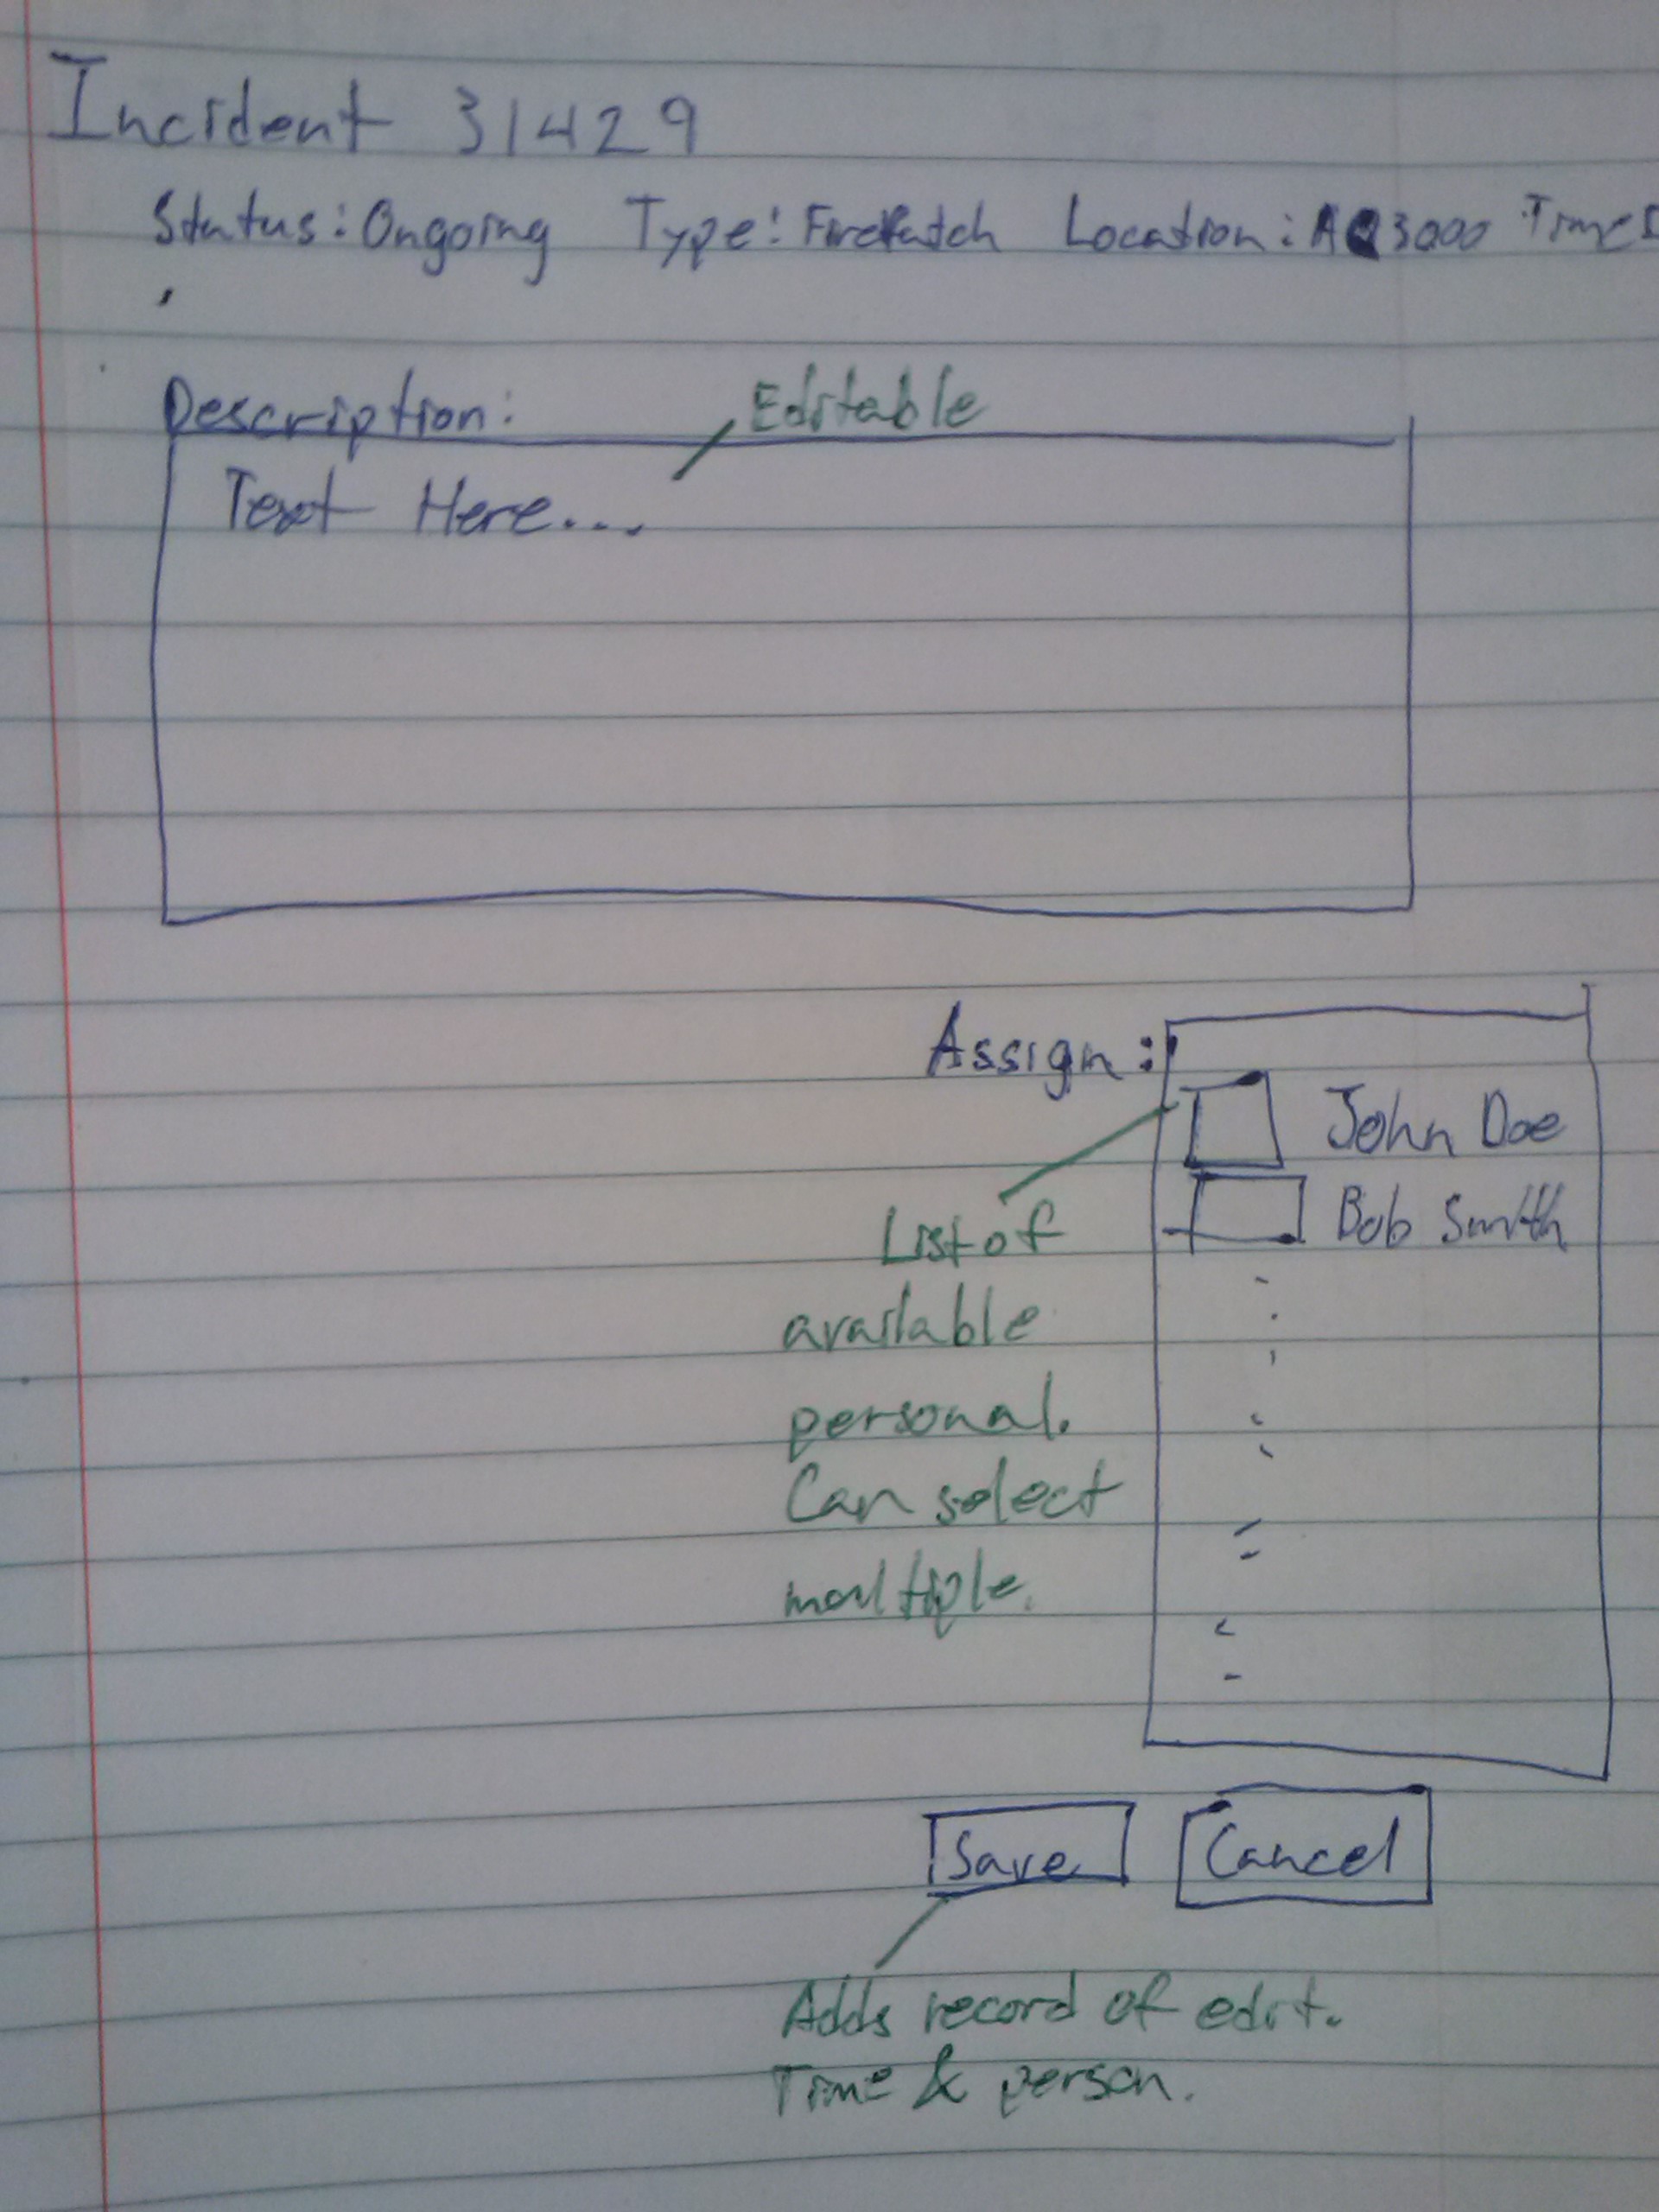 Incident 31429
Status: Ongoing Type: Location: AQ3000 Time
Description:
Editable
Text Here...
Assign:
John Doe
Bob Smith
List of
available
personal.
Can select
multiple.
Save
Cancel
Adds record of edit.
Time & person.